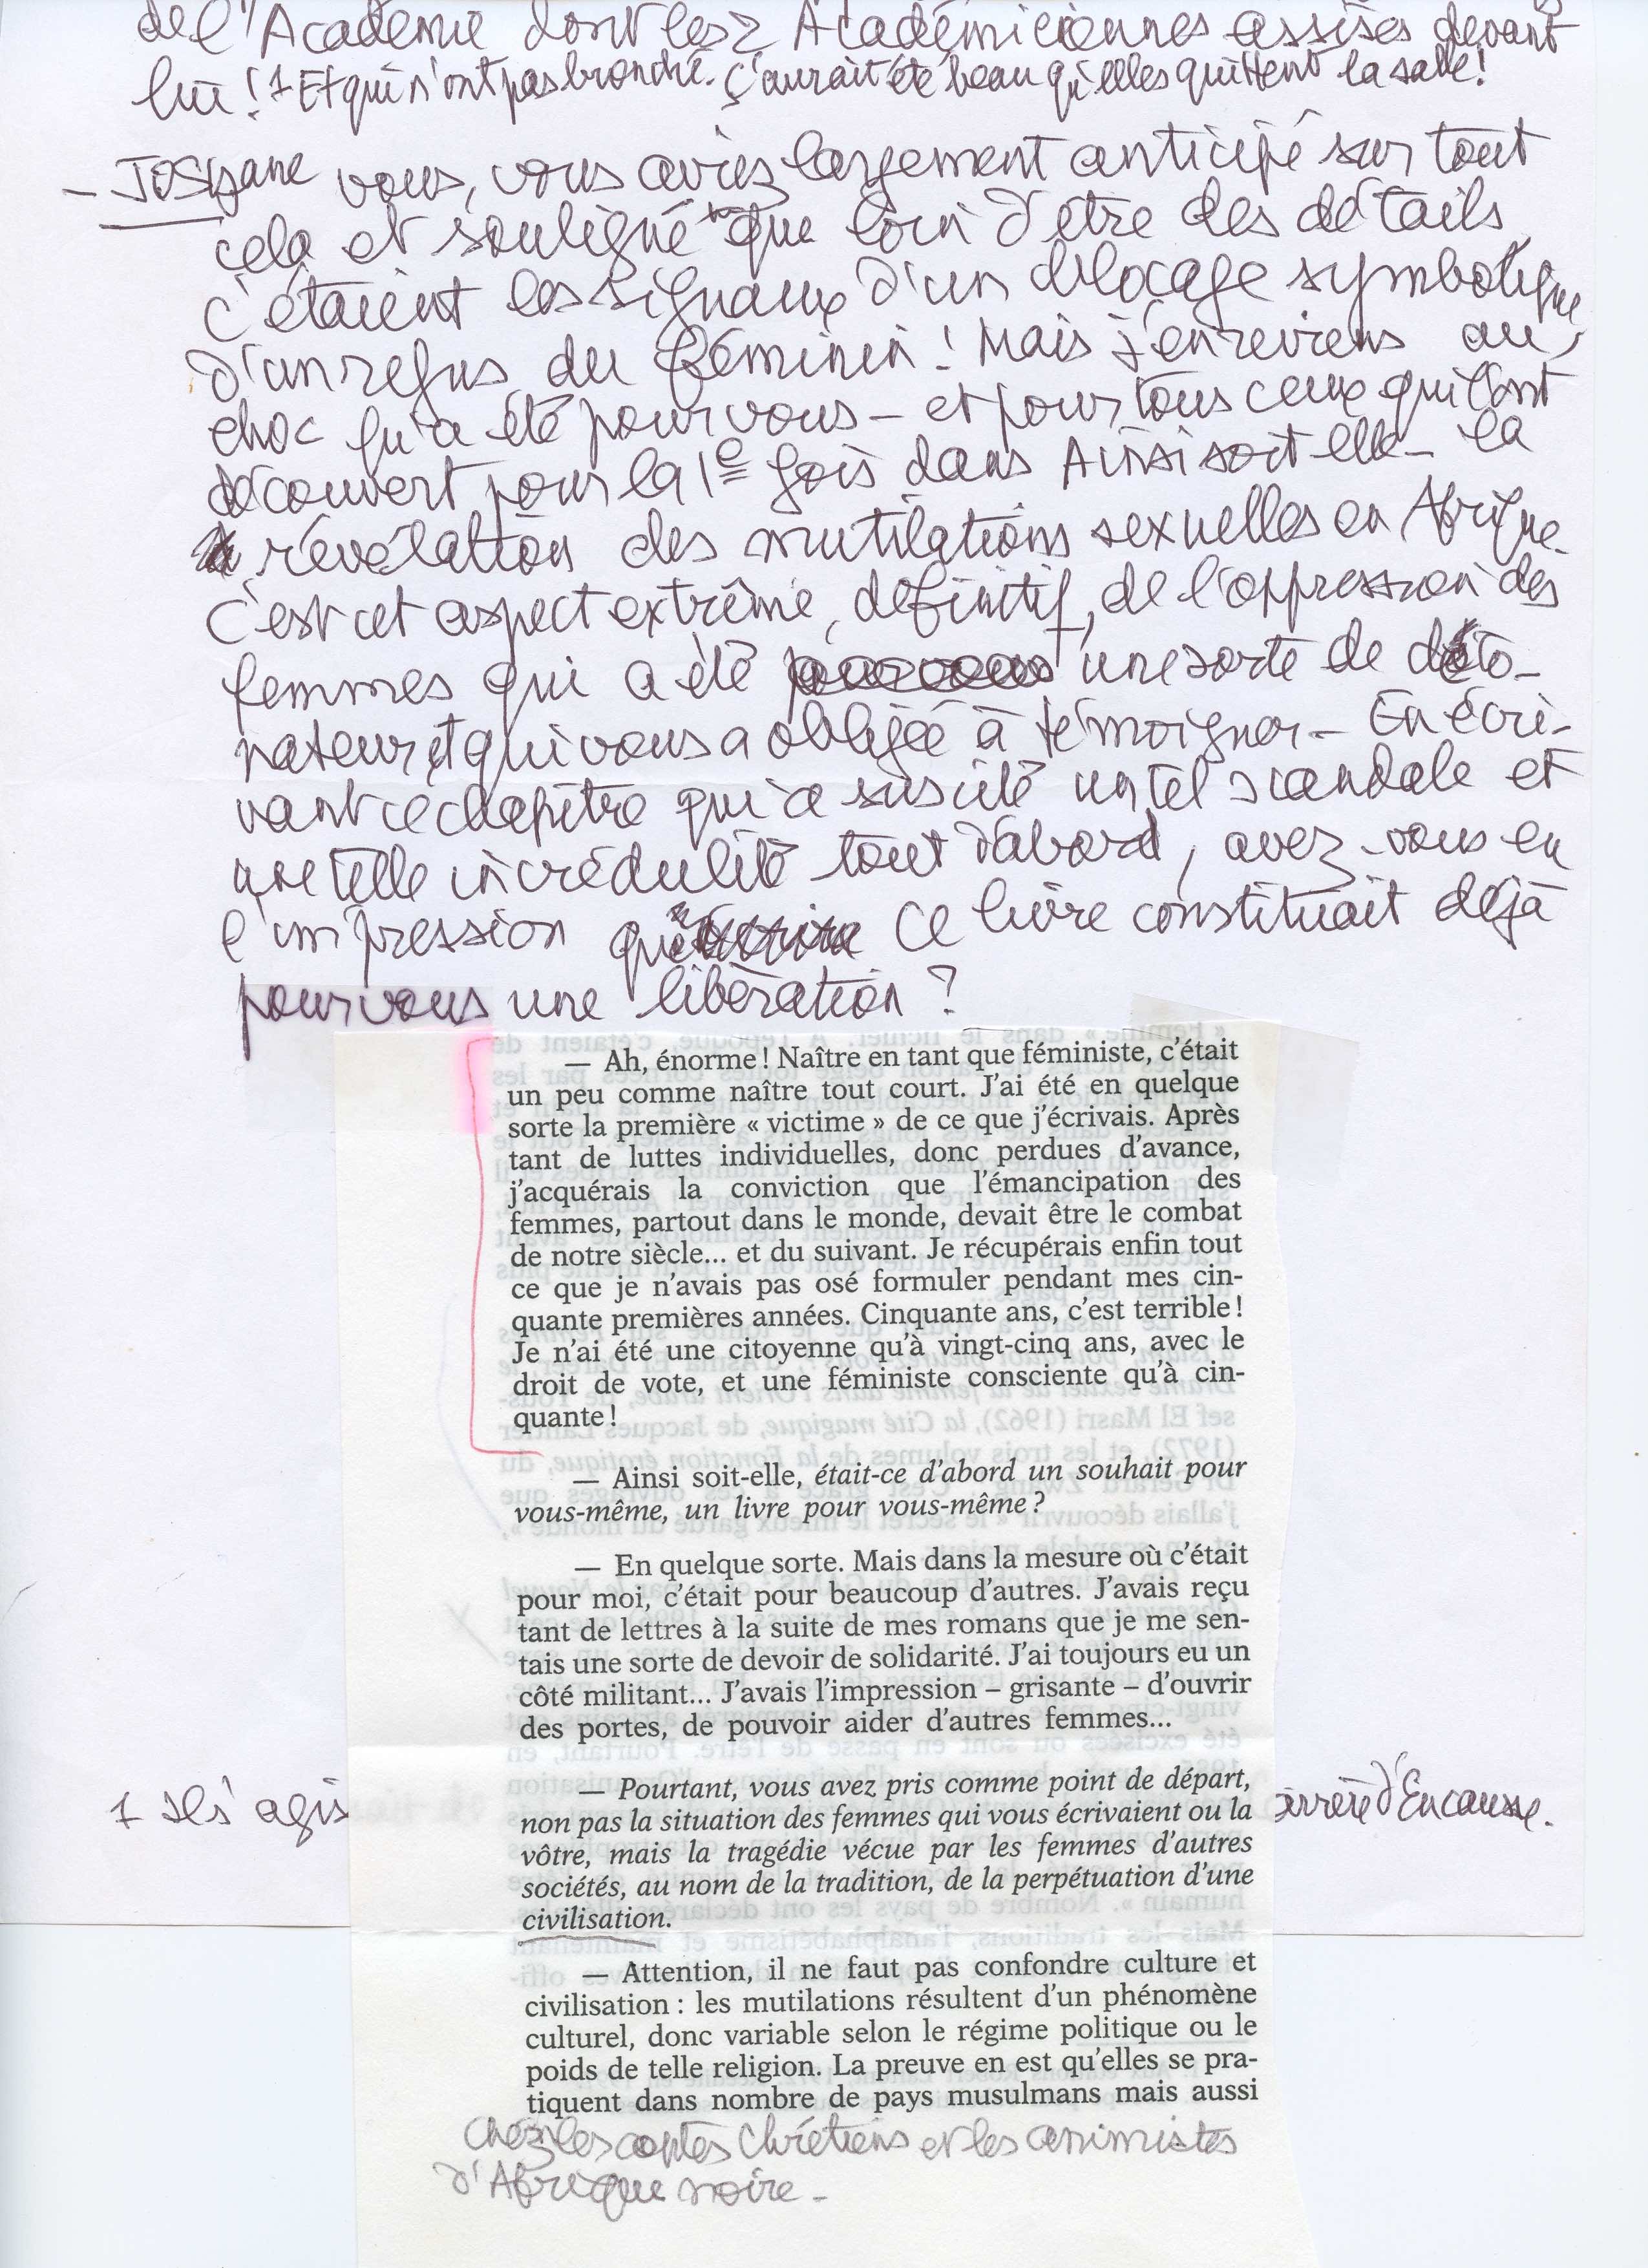 de l'Académie dont les 2 Académiciennes assises devant
lui ! 1 Et qui n'ont pas bronché. Ç'aurait été beau qu'elles quittent la salle !
– Josyane vous, vous aviez largement anticipé sur tout
cela et souligné que loin d'être des détails
c'étaient les signaux d'un blocage symbolique,
d'un refus du féminin ! Mais j'en reviens au
choc qu'a été pour vous – et pour tous ceux qui l'ont
découvert pour la 1e fois dans Ainsi soit elle – la
révélation des mutilations sexuelles en Afrique.
C'est cet aspect extrême, définitif, de l'oppression des
femmes qui a été une sorte de déto-
nateur et qui vous a obligée à témoigner – En écri-
vant ce chapitre qui a suscité un tel scandale et
une telle incrédulité tout d'abord, avez-vous eu
l'impression que ce livre constituait déjà
pour vous une libération ?
— Ah, énorme ! Naître en tant que féministe, c'était
un peu comme naître tout court. J'ai été en quelque
sorte la première « victime » de ce que j'écrivais. Après
tant de luttes individuelles, donc perdues d'avance,
j'acquérais la conviction que l'émancipation des
femmes, partout dans le monde, devait être le combat
de notre siècle... et du suivant. Je récupérais enfin tout
ce que je n'avais pas osé formuler pendant mes cin-
quante premières années. Cinquante ans, c'est terrible !
Je n'ai été une citoyenne qu'à vingt-cinq ans, avec le
droit de vote, et une féministe consciente qu'à cin-
quante !
— Ainsi soit-elle, était-ce d'abord un souhait pour
vous-même, un livre pour vous-même ?
— En quelque sorte. Mais dans la mesure où c'était
pour moi, c'était pour beaucoup d'autres. J'avais reçu
tant de lettres à la suite de mes romans que je me sen-
tais une sorte de devoir de solidarité. J'ai toujours eu un
côté militant... J'avais l'impression – grisante – d'ouvrir
des portes, de pouvoir aider d'autres femmes...
— Pourtant, vous avez pris comme point de départ,
non pas la situation des femmes qui vous écrivaient ou la
vôtre, mais la tragédie vécue par les femmes d'autres
sociétés, au nom de la tradition, de la perpétuation d'une
civilisation.
1 Il s'agis d'Encausse.
— Attention, il ne faut pas confondre culture et
civilisation : les mutilations résultent d'un phénomène
culturel, donc variable selon le régime politique ou le
poids de telle religion. La preuve en est qu'elles se pra-
tiquent dans nombre de pays musulmans mais aussi
chez les coptes chrétiens et les animistes
d'Afrique noire –